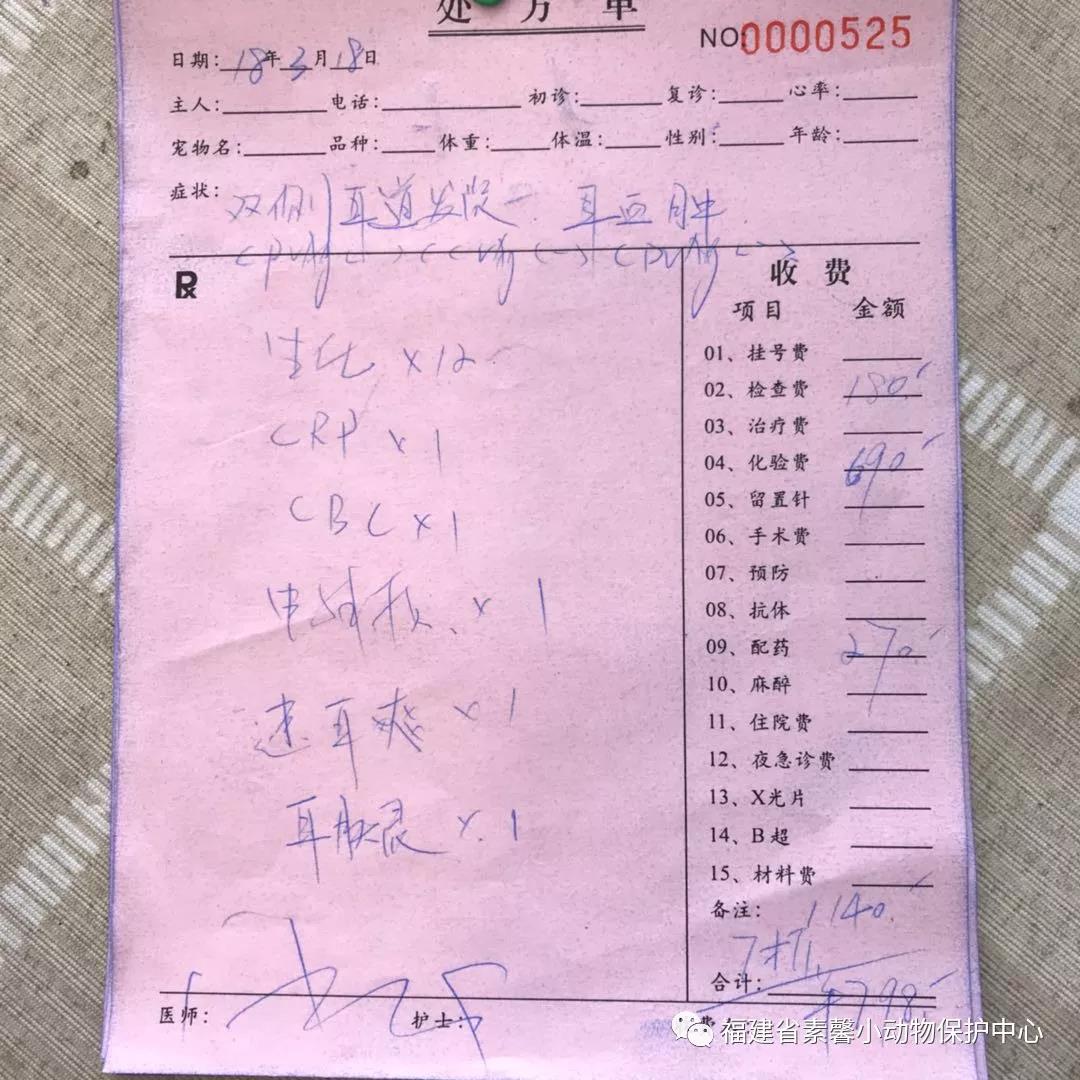 处方单
NO:0000525
日期:18年3月18日
主人: 电话: 初诊: 复诊: 心率:
宠物名: 品种: 体重: 体温: 性别: 年龄:
症状: 双侧耳道发炎 耳血肿
(CDVAg(-)) (CCVAg(-)) (CPVAg(-))
R 收费
项目 金额
01、挂号费
生化 x12
02、检查费 180
03、治疗费
CRP x1
04、化验费 690
05、留置针
CBC x1
06、手术费
07、预防
08、抗体
x1
09、配药 270
10、麻醉
速耳爽 x1
11、住院费
12、夜急诊费
13、X光片
耳肤灵 x1
14、B超
15、材料费
备注: 1140
7折
合计: ¥798
医师: 护士:
福建省素馨小动物保护中心